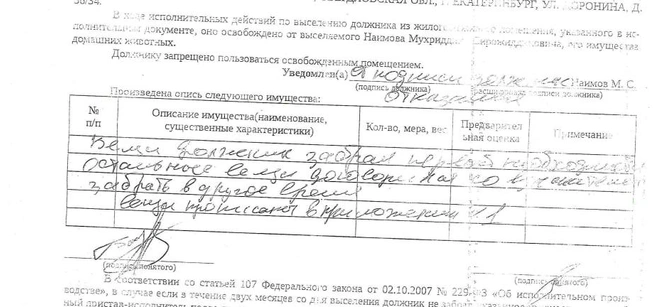 30/34. СВЕРДЛОВСКАЯ ОБЛ., Г. ЕКАТЕРИНБУРГ, УЛ. ДОРОНИНА, Д.
В ходе исполнительных действий по выселению должника из жилого помещения, указанного в ис-
полнительном документе, оно освобождено от выселяемого Наимова его имущества
домашних животных.
Должнику запрещено пользоваться освобожденным помещением.
Уведомлен(а) От подписи должник Наимов М. С.
(подпись должника)
отказался
Произведена опись следующего имущества:
№ п/п Описание имущества(наименование, существенные характеристики) Кол-во, мера, вес Предваритель ная оценка Примечание
Вещи должник забрал
остальное вещи договорился
забрать в другое время
вещи прописаны в приложении №1
(подпись понятого)
(подпись понятого)
В соответствии со статьей 107 Федерального закона от 02.10.2007 № 229-ФЗ «Об исполнительном произ-
водстве», в случае если в течение двух месяцев со дня выселения должник не